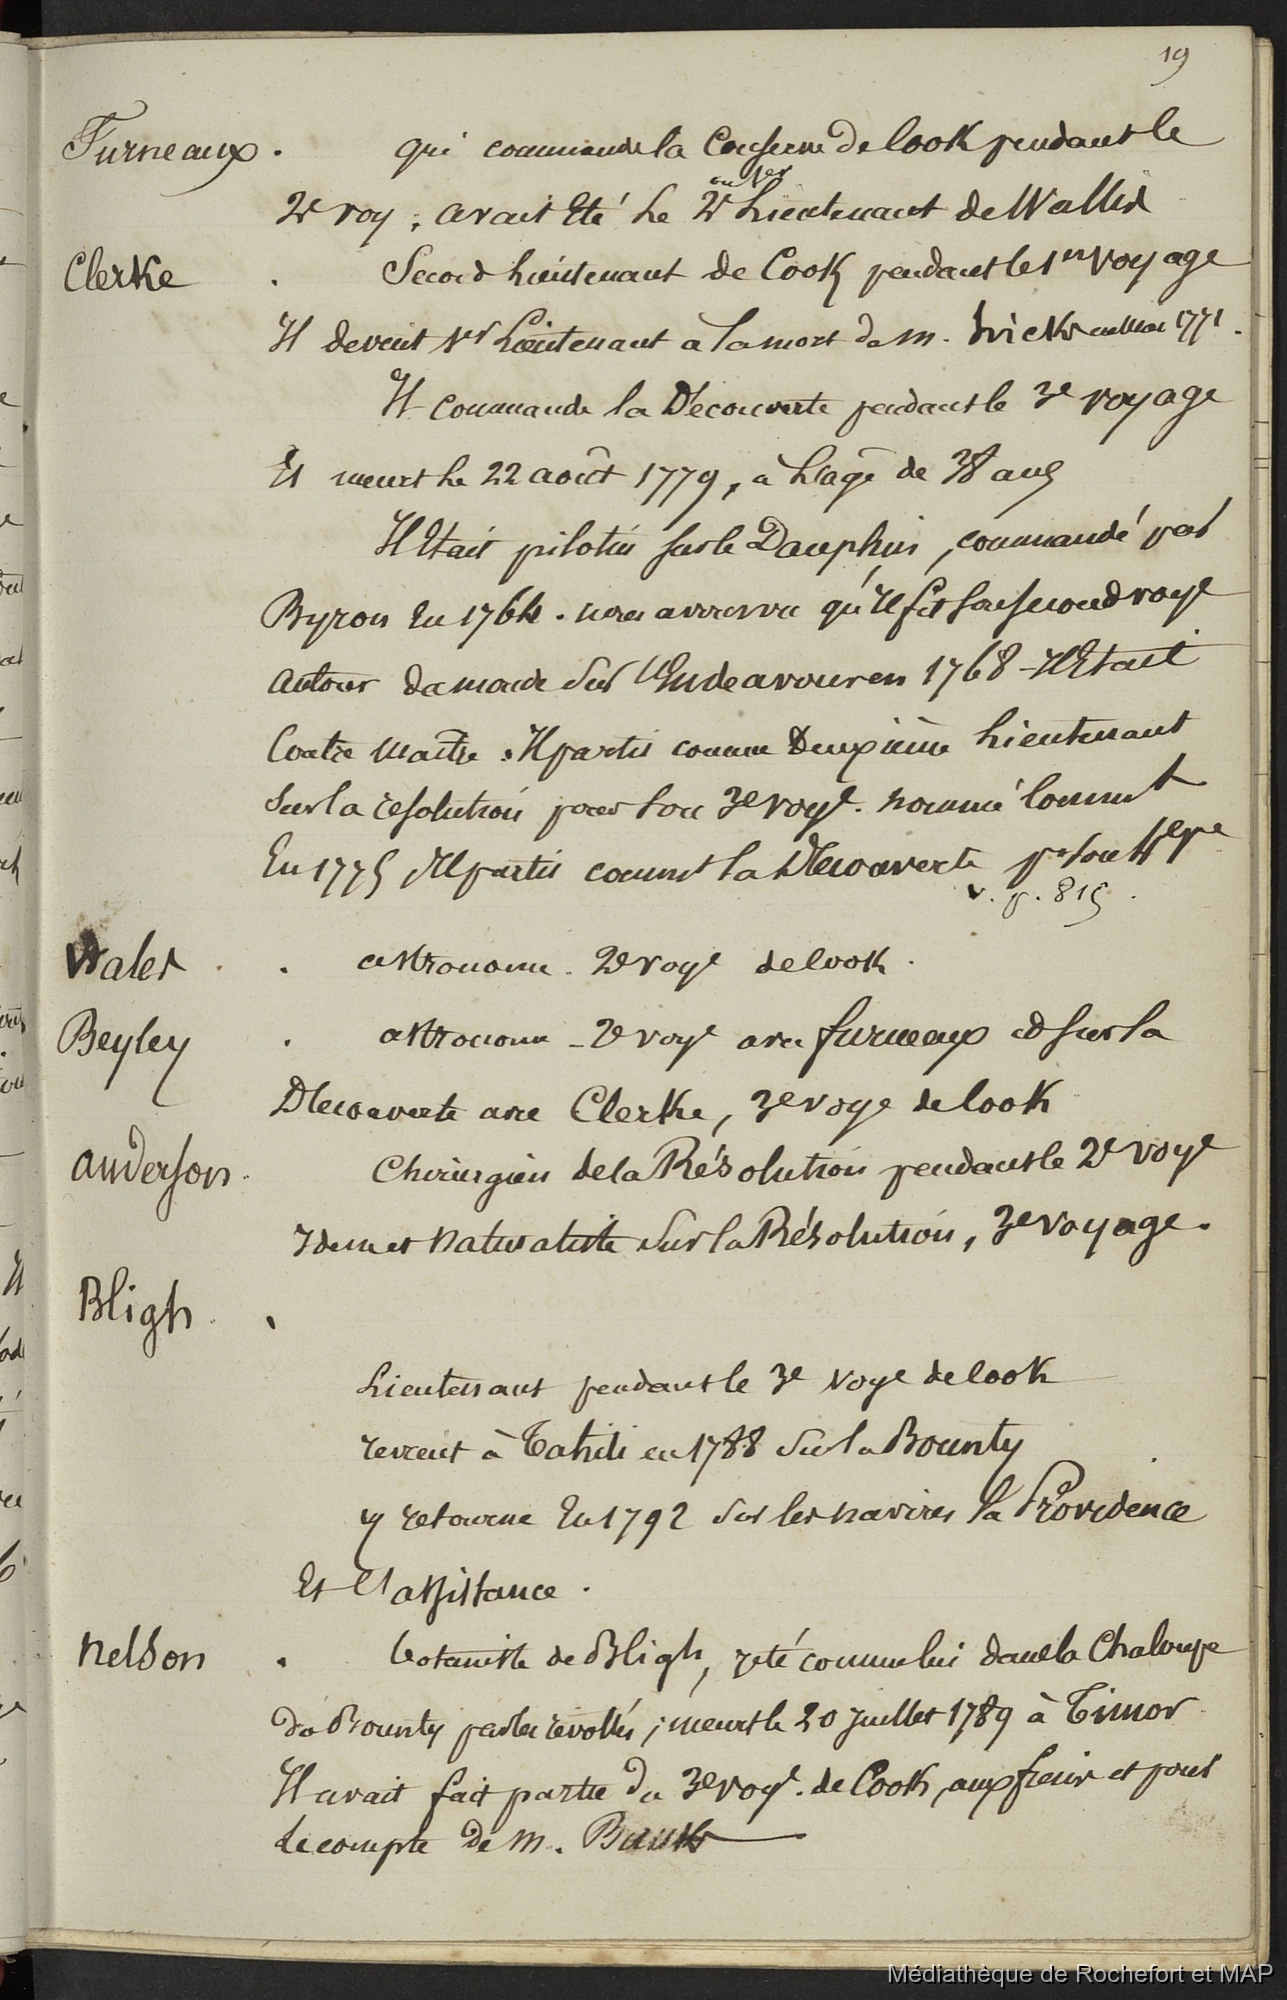 19
Furneaux . qui commande la Conserve de Cook pendant le
ou 1er
2e voy. avait Eté le 2e Lieutenant de Wallis
Clerke . Second Lieutenant de Cook pendant le 1er voyage
Il devint 1er Lieutenant a la mort de m. hicks en Mai 1771.
Il commande la Découverte pendant le 3e voyage
Et meurt le 22 août 1779, à L'agê de 38 ans
Il Etait pilotin sur le Dauphin, commandé par
Byron En 1764. nous avons vu qu'Il fit son second voye
autour du monde sur l'Endeavour en 1768 - Il Etait
Contre maître. Il partit comme Deuxième Lieutenant
Sur la résolution pour son 3e voye. nommé Commt
En 1775, Il partit commt la Découverte pr son
v. p. 815.
Wales . astronome. 2e voye de Cook.
Beyley . astronome - 2e voye avec furneaux id sur la
Découverte avec Clerke, 3e voye de Cook
anderson. Chirurgien de la Résolution pendant le 2e voye
Idem et naturaliste sur la Résolution, 3e voyage.
Bligh .
Lieutenant pendant le 3e voye de Cook
revient à Tahiti en 1788 sur la Bounty
y retourne En 1792 sur les navires la Providence
Et l'assistance.
nelson . botaniste de Bligh, jeté comme lui dans la Chaloupe
du Bounty par les révoltés; meurt le 20 juillet 1789 à Timor
Il avait fait partie du 3e voye. de Cook, aux frais et pour
le compte de m. Banks
Médiathèque de Rochefort et MAP